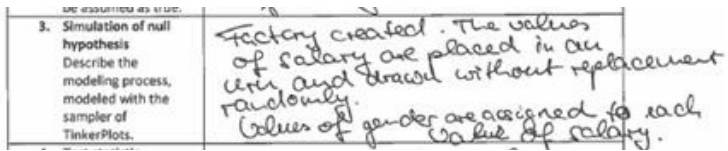 be assumed as true.
3. Simulation of null
hypothesis
Describe the
modeling process,
modeled with the
sampler of
TinkerPlots.
Factory created. The values
of salary are placed in an
urn and drawn without replacement
randomly.
Values of gender are assigned to each
value of salary.